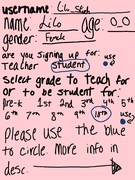 username: Lilo Stitch
name: Lilo age: 0.0
gender: Female
are you signing up for: use
teacher student
Select grade to teach for
or to be student for:
pre-k 1st 2nd 3rd 4th 5th
6th 7th 8th 9th 10th use
Please use the blue
to circle. more info in
desc.